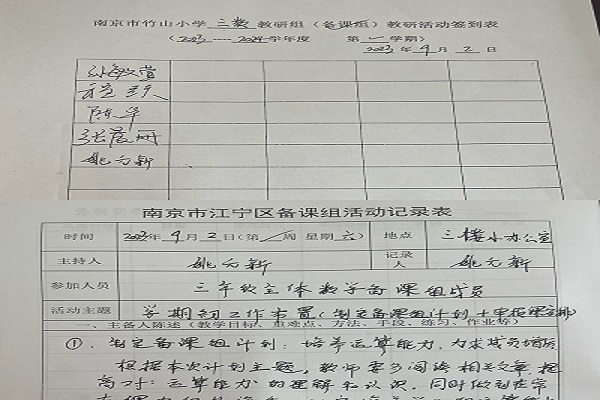 南京市竹山小学 三数 教研组（备课组）教研活动签到表
（2023 ---- 2024学年度 第 一 学期）
2023 年 9 月 2 日
孙敏堂
陈华
张晨珊
姚元新
南京市江宁区备课组活动记录表
时间 2023年 9 月 2 日（第 一 周 星期 六） 地点 三楼小办公室
主持人 姚元新 记录人 姚元新
参加人员 三年级全体数学备课组成员
活动主题 学期初工作布置（制定备课组计划
一、主备人陈述（教学目标、重难点、方法、手段、练习、作业等）
①. 制定备课组计划：培养运算能力，为求成员
根据本次计划主题，教师要多阅读相关文章，提
高对"运算能力"的理解和认识，同时做到在常